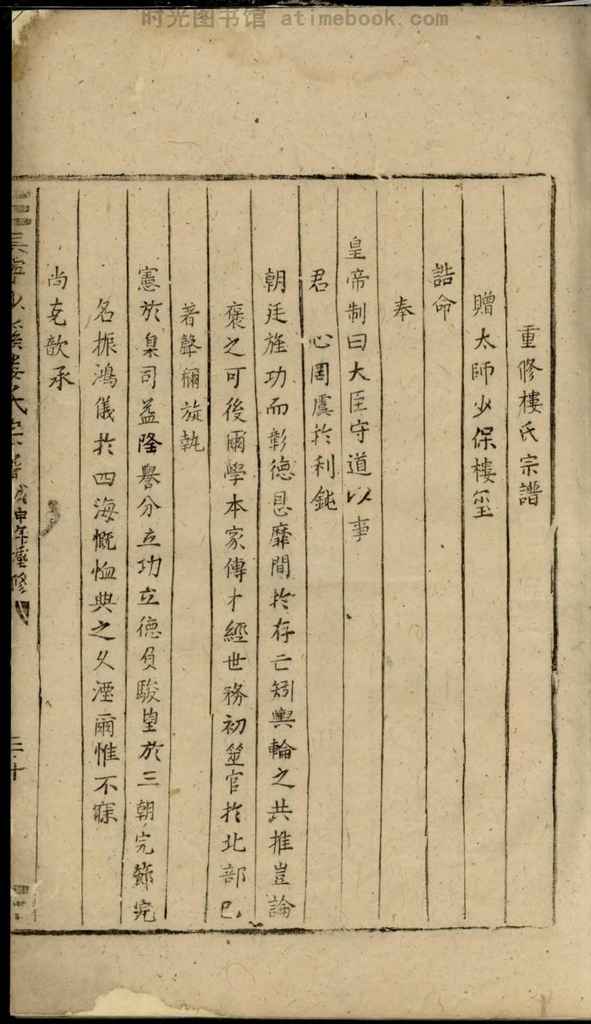 时光图书馆 atimebook.com
重修樓氏宗譜
贈太師少保樓璽
誥命
奉
皇帝制曰大臣守道以事
君 心罔虞扵利鈍
朝廷旌功而彰德恩靡間扵存亡矧輿輪之共推豈論
褒之可後爾學本家傳才經世務初筮官扵北部已
著聲稱旋執
憲於臬司益隆譽分立功立德負駿望於三朝完節完
名振鴻儀扵四海慨恤典之久湮爾惟不寐
尚克歆承
樓氏宗譜 戊申年重修
二十